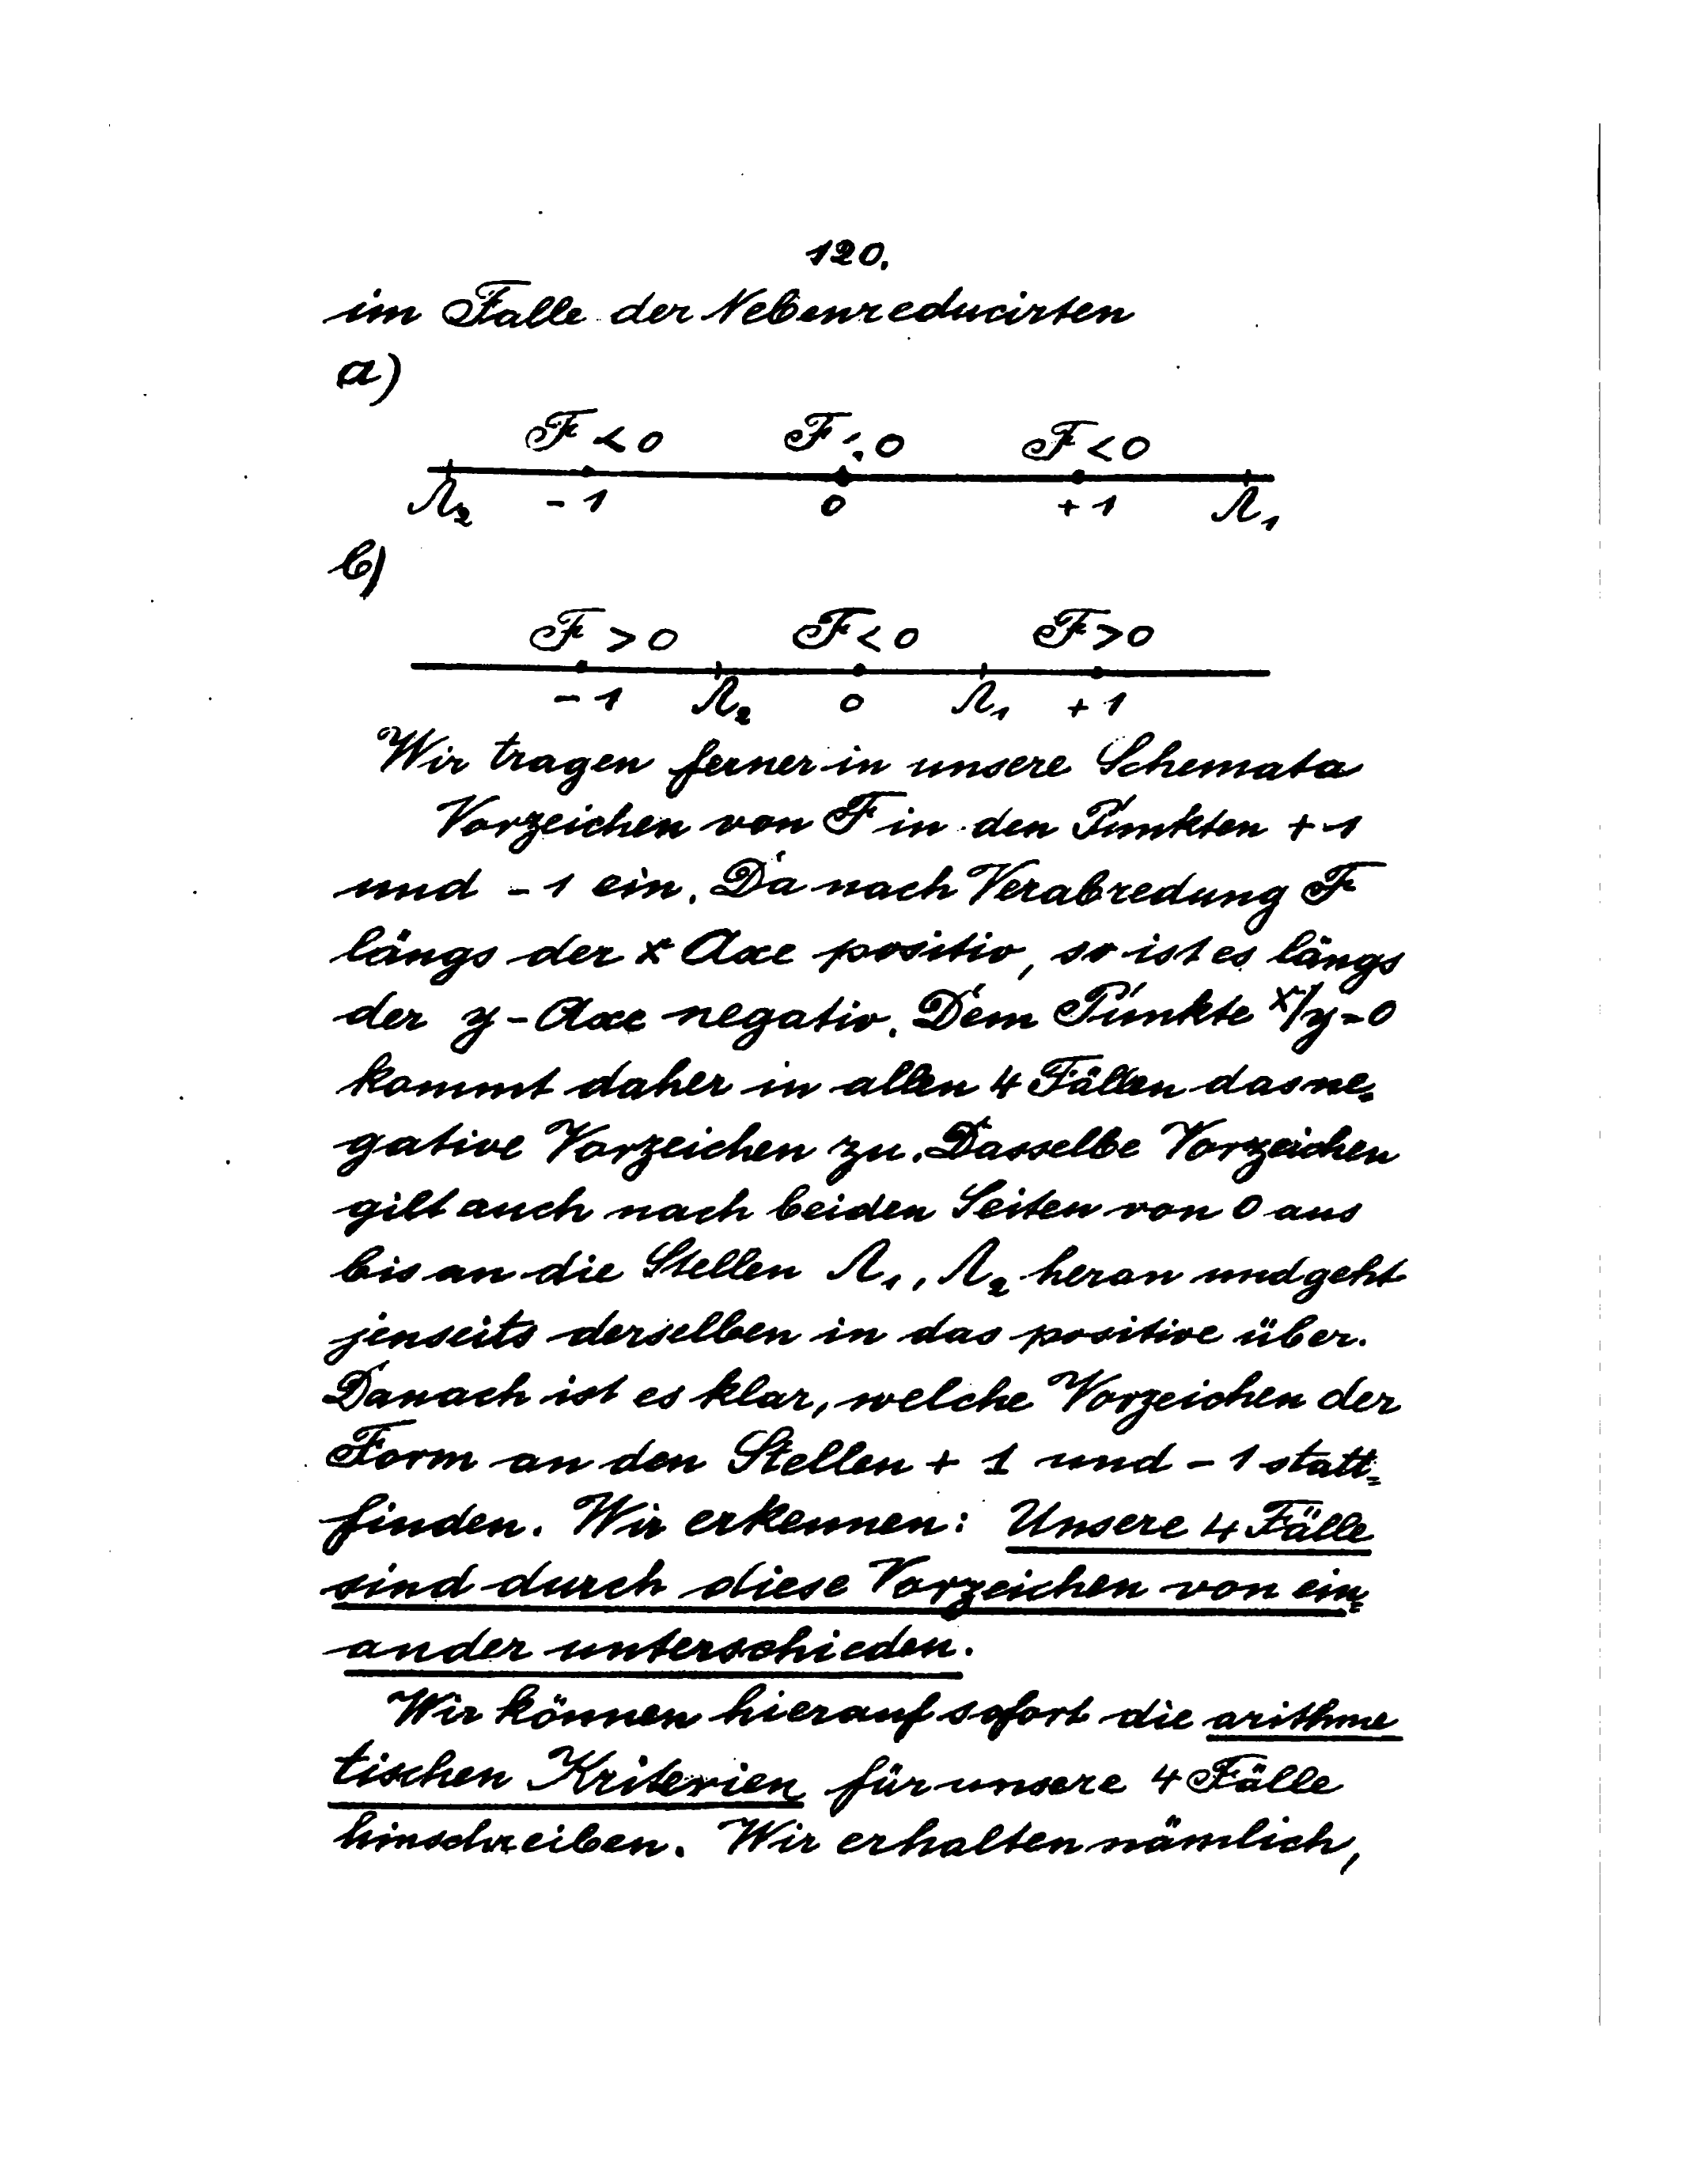 120.
im Falle der Nebenreducirten
a)
F < 0 F < 0 F < 0
Λ₂ - 1 0 + 1 Λ₁
b)
F > 0 F < 0 F > 0
- 1 Λ₂ 0 Λ₁ + 1
Wir tragen ferner in unsere Schemata
Vorzeichen von F in den Punkten + 1
und - 1 ein. Da nach Verabredung F
längs der x Axe positiv, so ist es längs
der y-Axe negativ. Dem Punkte x/y=0
kommt daher in allen 4 Fällen das ne-
gative Vorzeichen zu. Dasselbe Vorzeichen
gilt auch nach beiden Seiten von 0 aus
bis an die Stellen Λ₁, Λ₂ heran und geht
jenseits derselben in das positive über.
Danach ist es klar, welche Vorzeichen der
Form an den Stellen + 1 und - 1 statt=
finden. Wir erkennen: Unsere 4 Fälle
sind durch diese Vorzeichen von ein=
ander unterschieden.
Wir können hierauf sofort die arithme
tischen Kriterien für unsere 4 Fälle
hinschreiben. Wir erhalten nämlich,